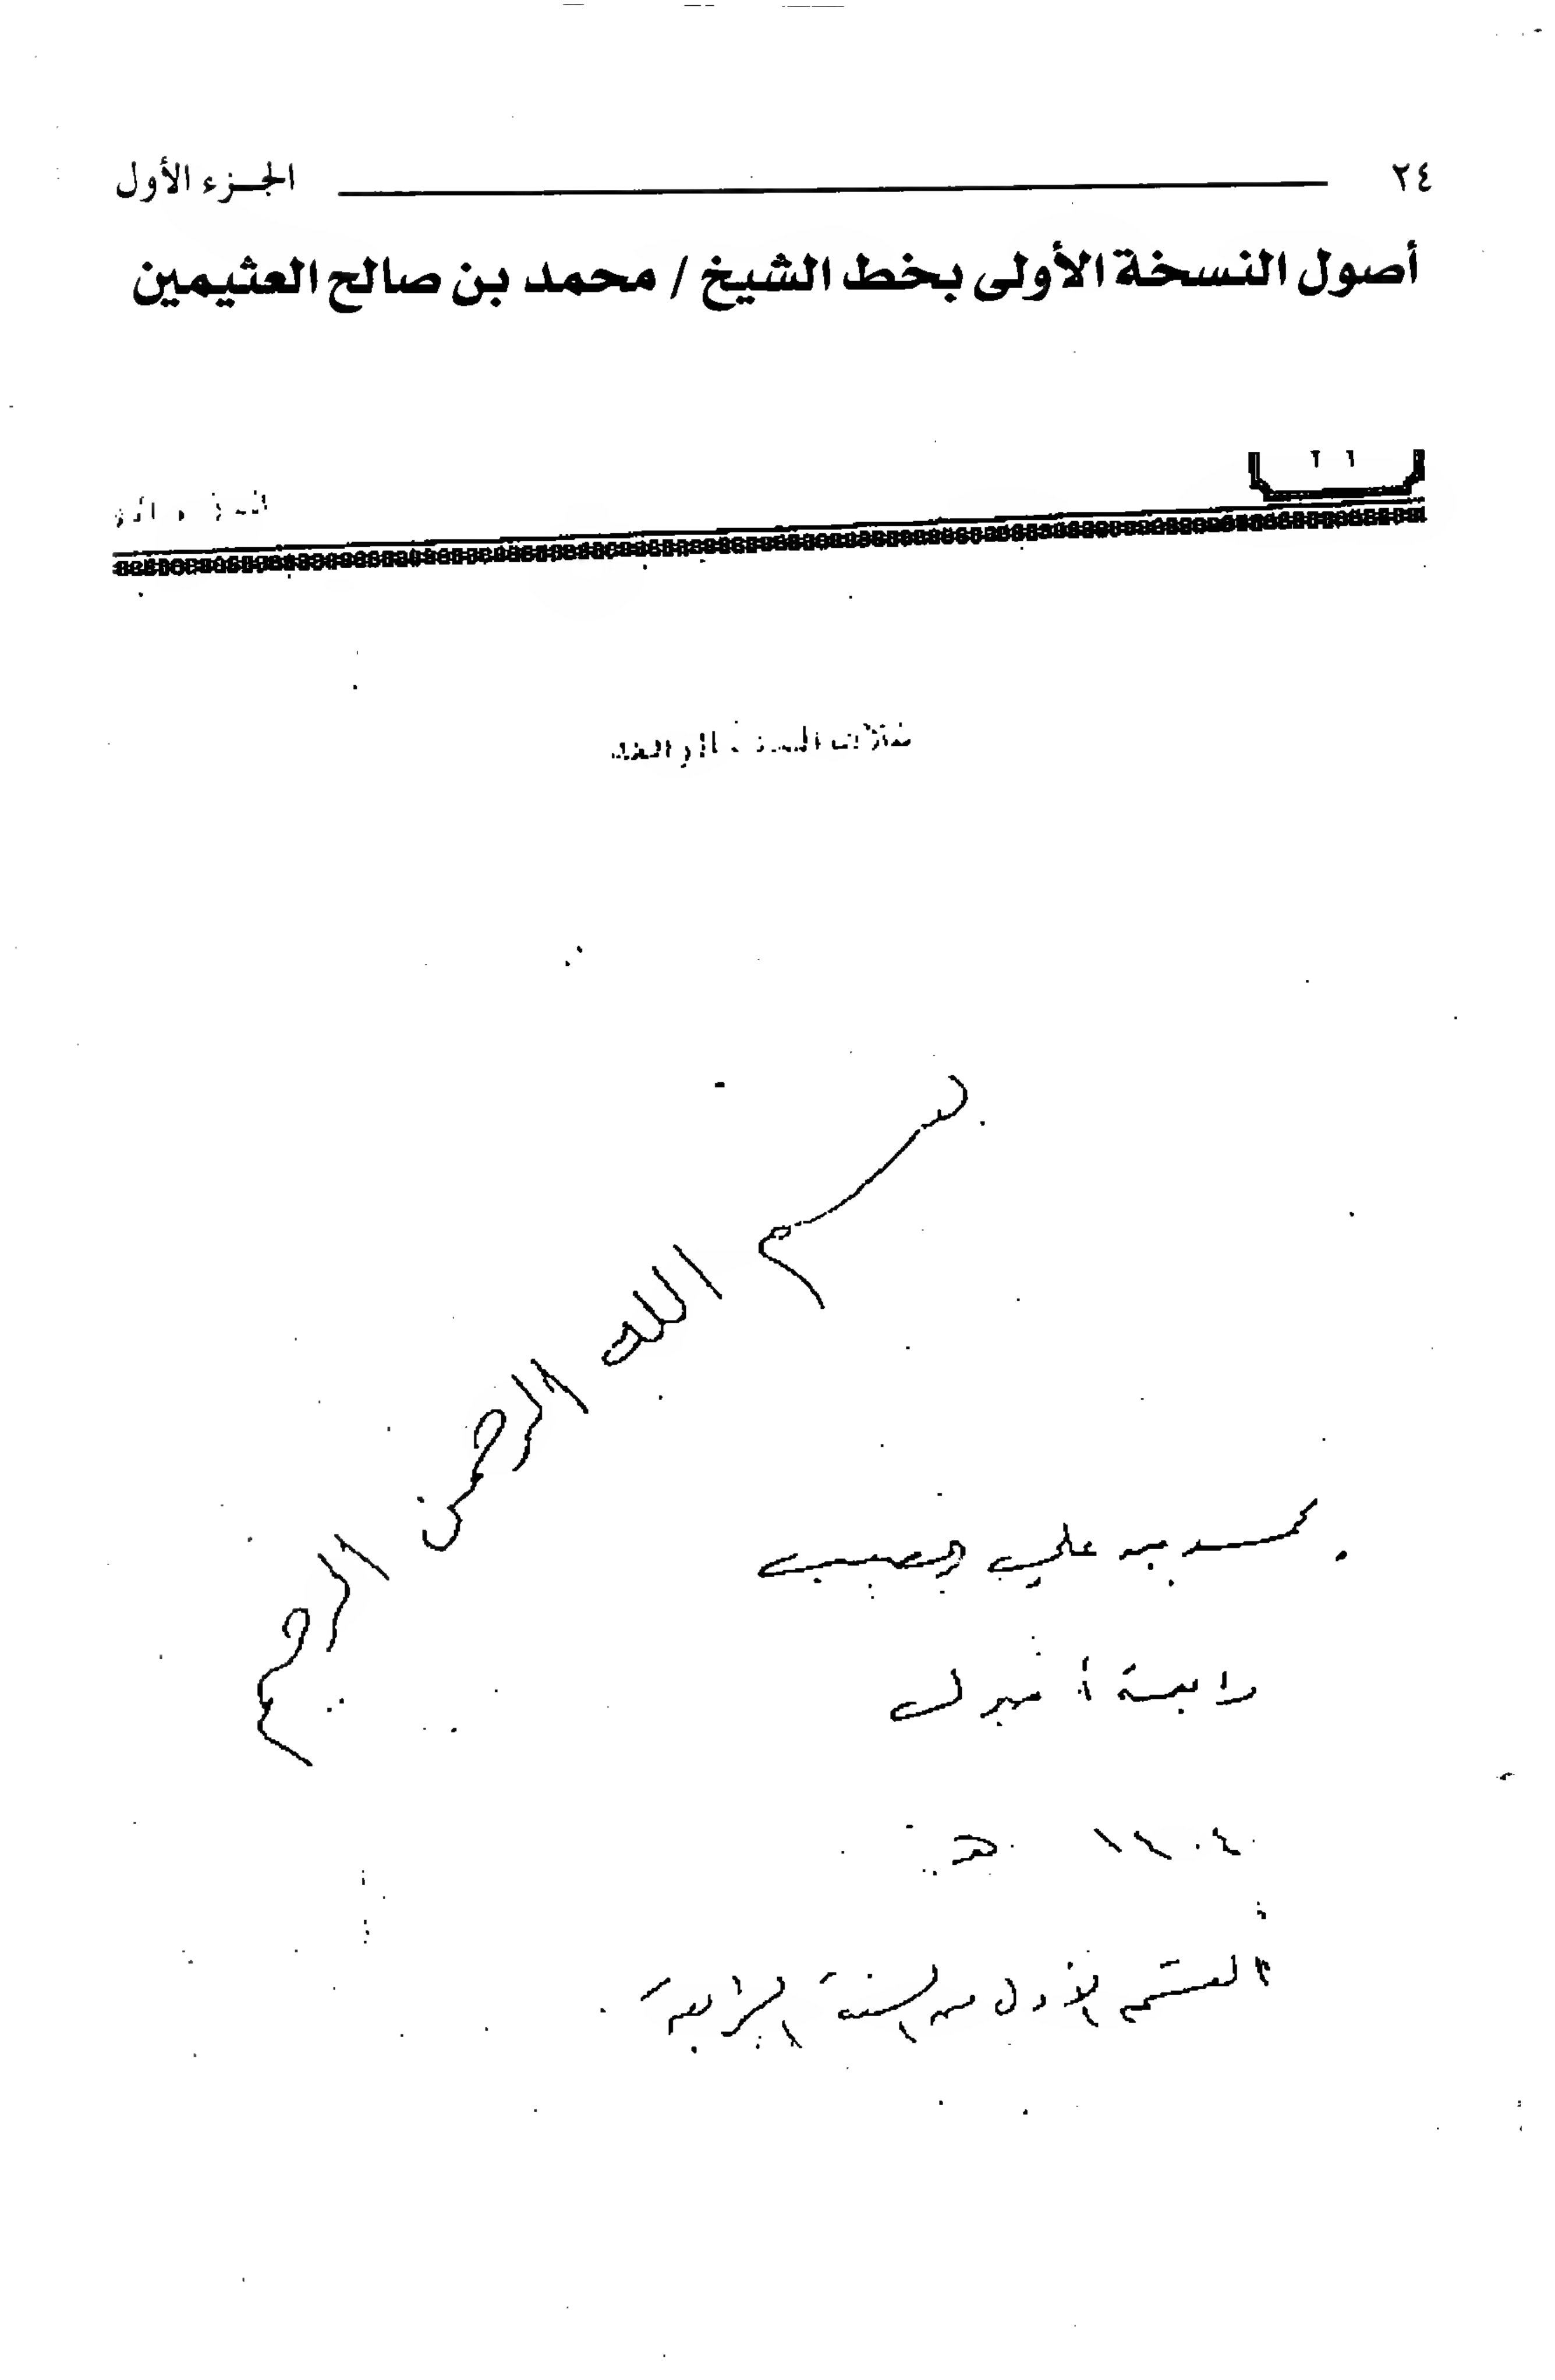 ٢٤ الجزء الأول
أصول النسخة الأولى بخط الشيخ / محمد بن صالح العثيمين
بسم الله الرحمن الرحيم
محمد بن علي
رابعة
١٤٠٤ هـ
القسم الأول من السنة الرابعة